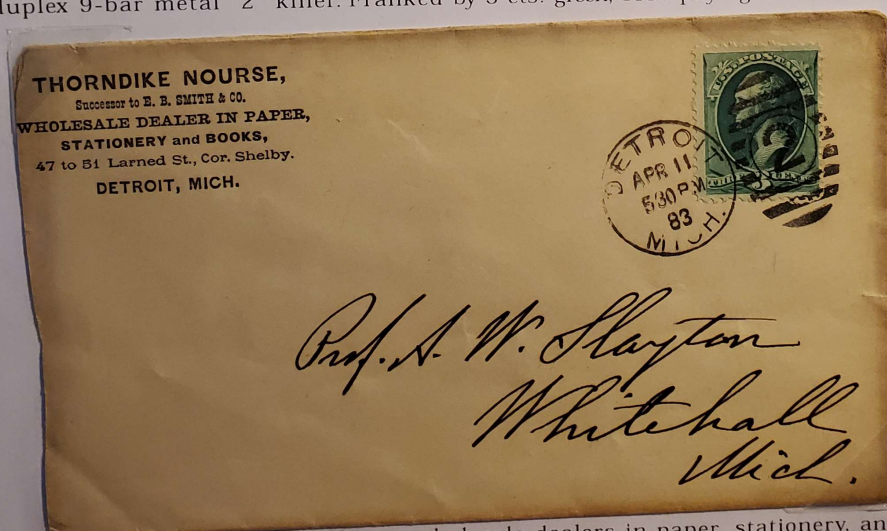 duplex 9-bar metal "2" killer. Franked by 3 cts. green,
THORNDIKE NOURSE,
Successor to E. B. SMITH & CO.
WHOLESALE DEALER IN PAPER,
STATIONERY and BOOKS,
47 to 51 Larned St., Cor. Shelby.
DETROIT, MICH.
U.S. POSTAGE
DETROIT
APR 11
530 PM
83
MICH.
2
Prof. A. W. Slayton
Whitehall
Mich.
dealers in paper, stationery, an